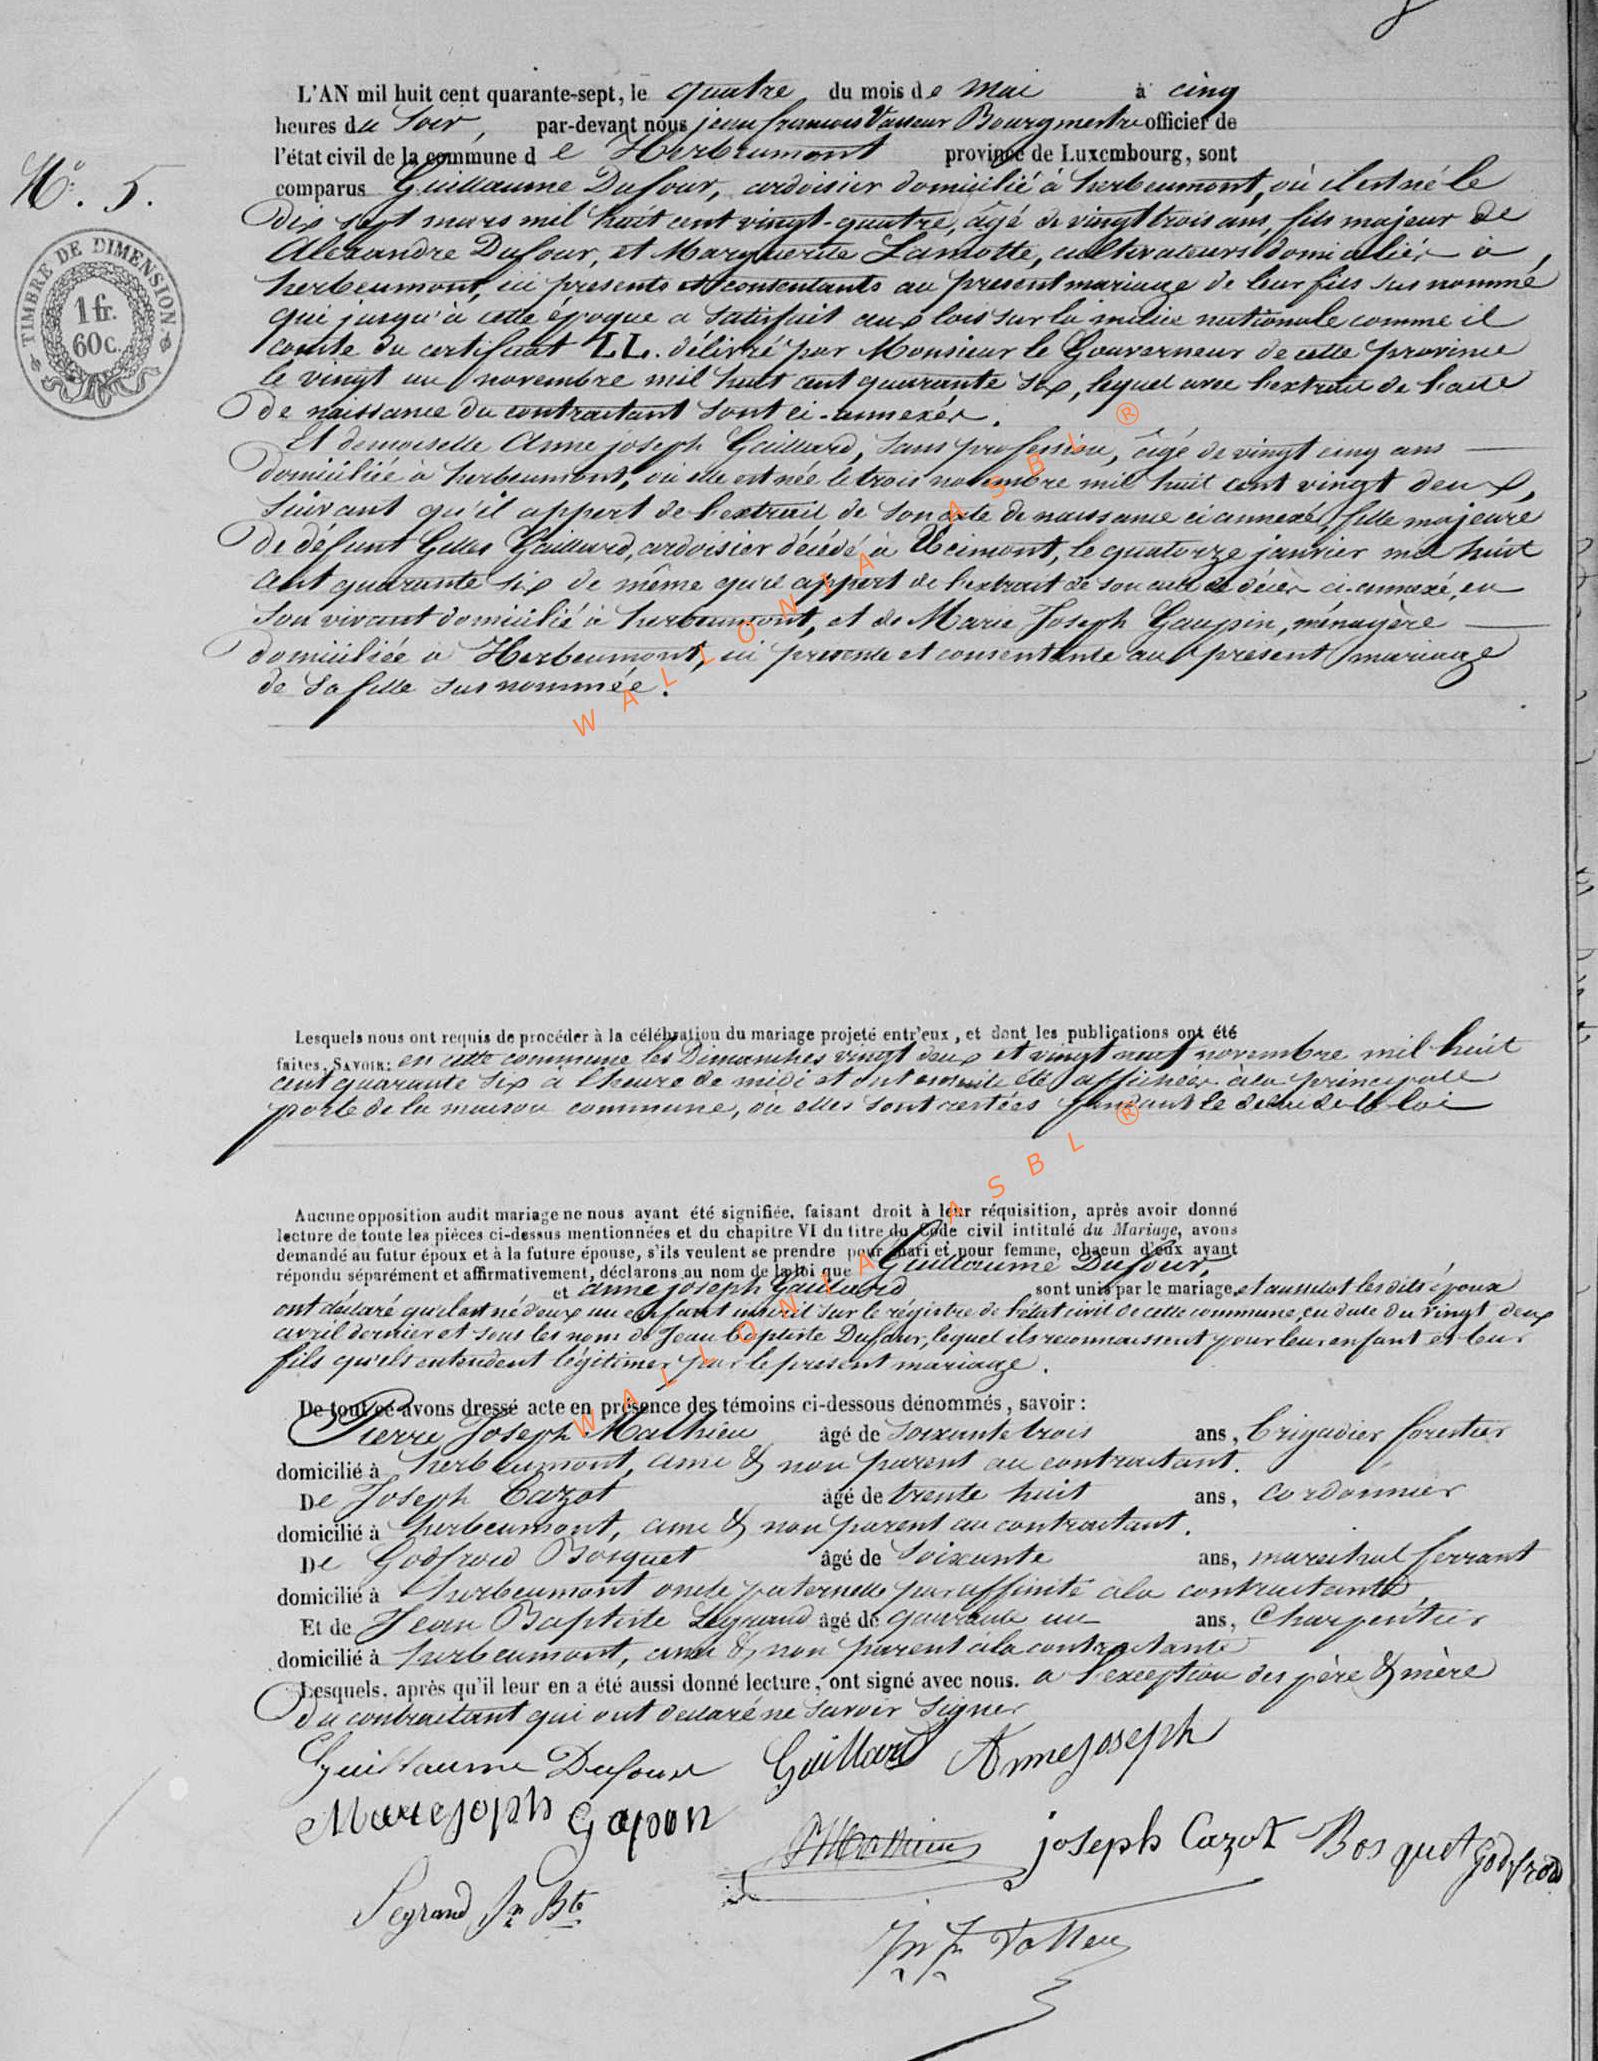 N.º 5.
TIMBRE DE DIMENSION.
1 fr.
60 c.
L'AN mil huit cent quarante-sept, le quatre du mois de Mai à cinq
heures du soir, par-devant nous jean francois Bourgmestre officier de
l'état civil de la commune de Herbeumont province de Luxembourg, sont
comparus Guillaume Dufour, ardoisier domicilié à herbeumont, où il est né le
dix sept mars mil huit cent vingt-quatre, âgé de vingt trois ans, fils majeur de
Alexandre Dufour, et Marguerite Lamotte, cultivateurs domiciliés à
herbeumont, ici présents et consentants au present mariage de leur fils sus nommé
qui jusqu'à cette époque a satisfait aux lois sur la milice nationale comme il
conste du certificat LL. délivré par Monsieur le Gouverneur de cette province
le vingt un novembre mil huit cent quarante six, lequel avec l'extrait de l'acte
de naissance du contractant sont ci-annexés.
Et demoiselle Anne joseph Gaillard, sans profession, âgé de vingt cinq ans
domiciliée à herbeumont, où elle est née le trois novembre mil huit cent vingt deux,
suivant qu'il appert de l'extrait de son acte de naissance ci annexé, fille majeure
de défunt Gilles Gaillard, ardoisier décédé à le quatorze janvier mil huit
cent quarante six de même qu'il appert de l'extrait de son acte de décès ci-annexé, en
son vivant domicilié à herbeumont, et de Marie Joseph Gaupin, ménagère
domiciliée a Herbeumont, ici presente et consentente au present mariage
de sa fille sus nommée.
Lesquels nous ont requis de procéder à la célébration du mariage projeté entr'eux, et dont les publications ont été
faites, SAVOIR: en cette commune les Dimanches vingt deux et vingt neuf novembre mil huit
cent quarante six à l'heure de midi et ont ensuite été affichées à la principale
porte de la maison commune, où elles sont restées pendant le delai de la loi
Aucune opposition audit mariage ne nous ayant été signifiée, faisant droit à leur réquisition, après avoir donné
lecture de toute les pièces ci-dessus mentionnées et du chapitre VI du titre du Code civil intitulé du Mariage, avons
demandé au futur époux et à la future épouse, s'ils veulent se prendre pour mari et pour femme, chacun d'eux ayant
répondu séparément et affirmativement, déclarons au nom de la loi que Guillaume Dufour
et anne joseph Gaillard sont unis par le mariage, et aussitot les dits époux
ont déclaré qu'il est né deux un enfant inscrit sur le régistre de l'état civil de cette commune, en date du vingt deux
avril dernier et sous les nom de Jean baptiste Dufour, lequel ils reconnaissent pour leur enfant et leur
fils qu'ils entendent légitimer par le present mariage.
De tout ce avons dressé acte en présence des témoins ci-dessous dénommés, savoir:
Pierre Joseph Mathieu âgé de soixante trois ans, brigadier forestier
domicilié à herbeumont, ami & non parent au contractant.
De Joseph Cazot âgé de trente huit ans, cordonnier
domicilié à herbeumont, ami & non parent au contractant.
De Godfroid Bosquet âgé de soixante ans, marechal ferrant
domicilié à herbeumont oncle paternelle par affinité à la contractante
Et de Jean Baptiste Legrand âgé de quarante un ans, Charpentier
domicilié à herbeumont, ami & non parent à la contractante
Lesquels, après qu'il leur en a été aussi donné lecture, ont signé avec nous. a l'exception des père & mère
du contractant qui ont declaré ne savoir signer
Guillaume Dufour Gaillard Annejoseph
Mariejoph Gapon PJMathieu joseph Cazot Bosquet Godfroid
Legrand Jn Bte
WALLONIA ASBL ®
WALLONIA ASBL ®